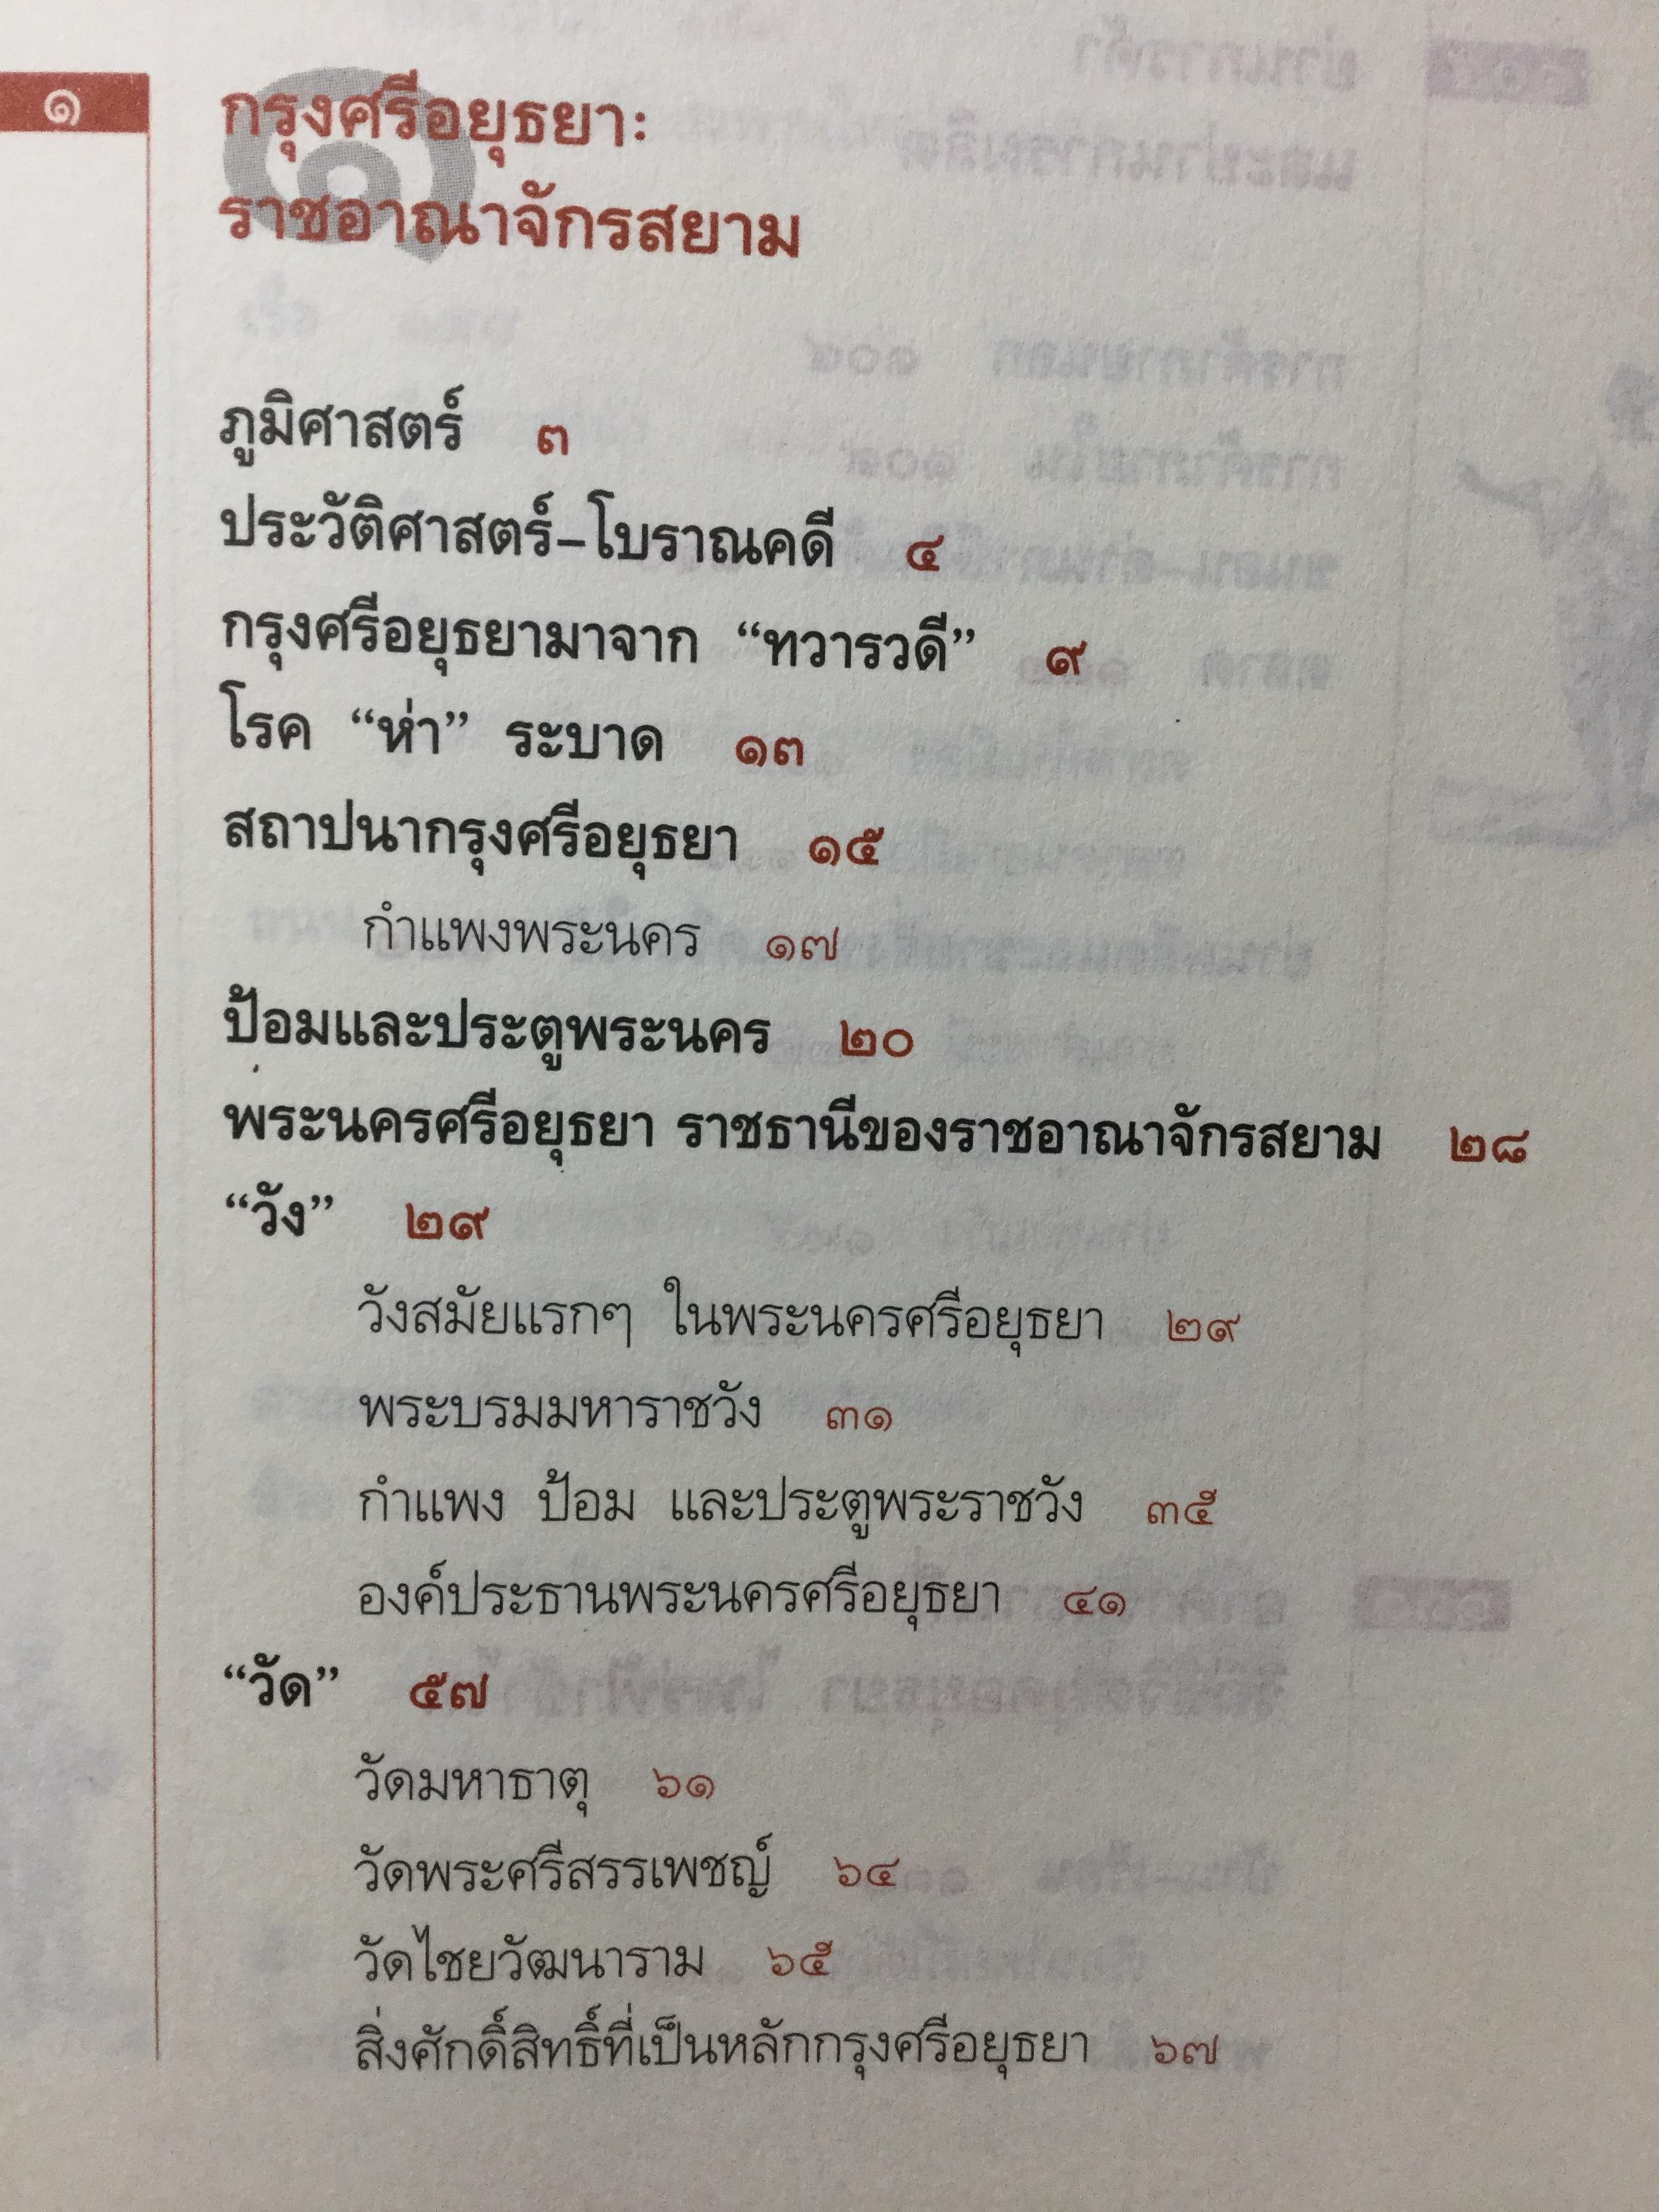 ๑
กรุงศรีอยุธยา:
ราชอาณาจักรสยาม
ภูมิศาสตร์ ๓
ประวัติศาสตร์–โบราณคดี ๔
กรุงศรีอยุธยามาจาก “ทวารวดี” ๙
โรค “ห่า” ระบาด ๑๓
สถาปนากรุงศรีอยุธยา ๑๕
กำแพงพระนคร ๑๗
ป้อมและประตูพระนคร ๒๐
พระนครศรีอยุธยา ราชธานีของราชอาณาจักรสยาม ๒๘
“วัง” ๒๙
วังสมัยแรกๆ ในพระนครศรีอยุธยา ๒๙
พระบรมมหาราชวัง ๓๑
กำแพง ป้อม และประตูพระราชวัง ๓๕
องค์ประธานพระนครศรีอยุธยา ๔๑
“วัด” ๕๗
วัดมหาธาตุ ๖๑
วัดพระศรีสรรเพชญ์ ๖๔
วัดไชยวัฒนาราม ๖๕
สิ่งศักดิ์สิทธิ์ที่เป็นหลักกรุงศรีอยุธยา ๖๗